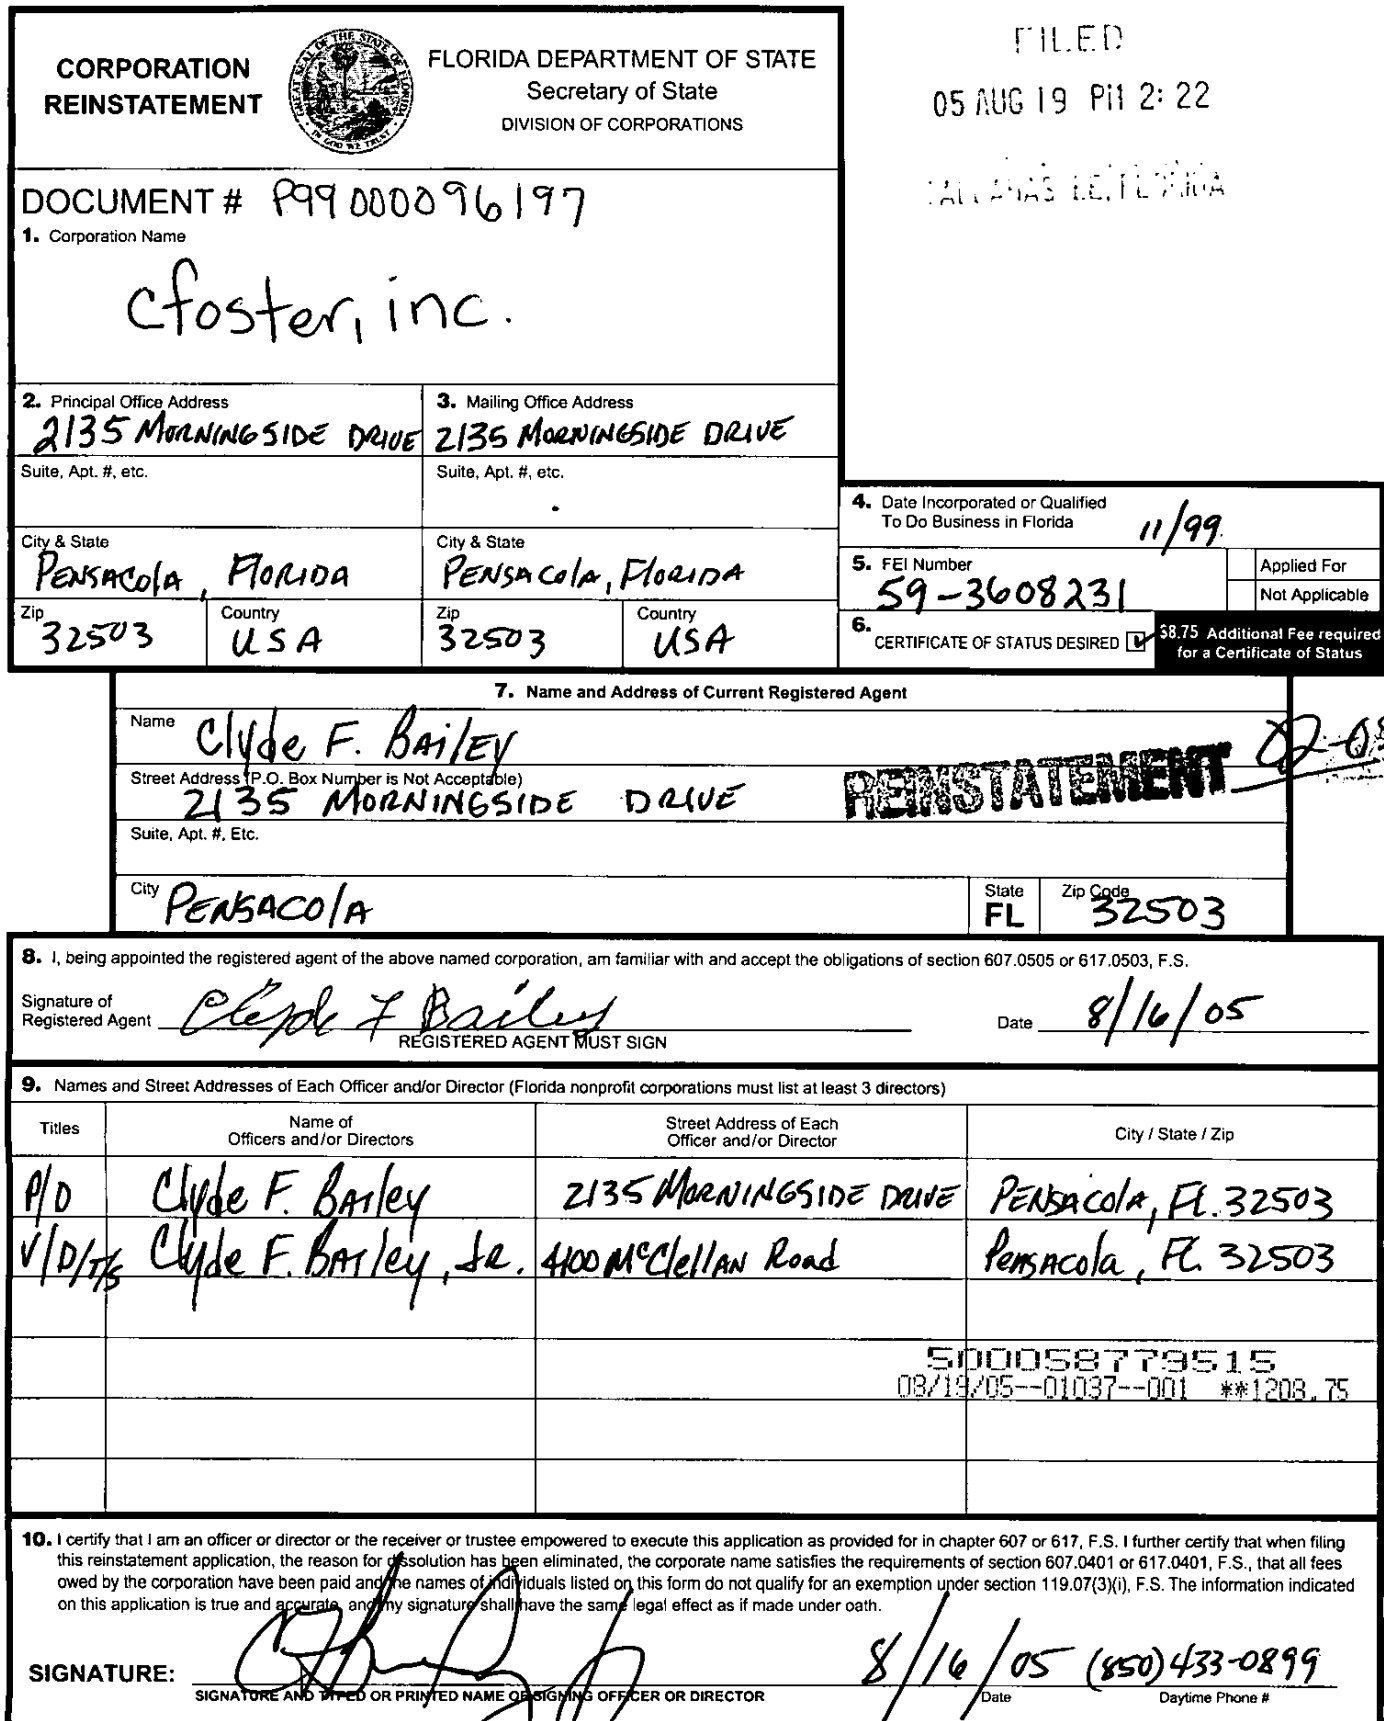 CORPORATION
REINSTATEMENT
FLORIDA DEPARTMENT OF STATE
Secretary of State
DIVISION OF CORPORATIONS
FILED
05 AUG 19 PM 2: 22
DOCUMENT # P99000096197
1. Corporation Name
cfoster, inc.
2. Principal Office Address
2135 MORNINGSIDE DRIVE
3. Mailing Office Address
2135 MORNINGSIDE DRIVE
Suite, Apt. #, etc.
Suite, Apt. #, etc.
City & State
PENSACOLA, FLORIDA
City & State
PENSACOLA, FLORIDA
Zip
32503
Country
USA
Zip
32503
Country
USA
4. Date Incorporated or Qualified
To Do Business in Florida
11/99
5. FEI Number
59-3608231
Applied For
Not Applicable
6. CERTIFICATE OF STATUS DESIRED
$8.75 Additional Fee required
for a Certificate of Status
7. Name and Address of Current Registered Agent
Name Clyde F. BAILEY
Street Address (P.O. Box Number is Not Acceptable)
2135 MORNINGSIDE DRIVE
REINSTATEMENT
Suite, Apt. #, Etc.
City PENSACOLA
State
FL
Zip Code
32503
8. I, being appointed the registered agent of the above named corporation, am familiar with and accept the obligations of section 607.0505 or 617.0503, F.S.
Signature of
Registered Agent Clyde F Bailey
REGISTERED AGENT MUST SIGN
Date 8/16/05
9. Names and Street Addresses of Each Officer and/or Director (Florida nonprofit corporations must list at least 3 directors)
Titles
Name of
Officers and/or Directors
Street Address of Each
Officer and/or Director
City / State / Zip
P/D Clyde F. BAiley 2135 MORNINGSIDE DRIVE PENSACOLA, FL. 32503
V/D/T/S Clyde F. BAiley, JR. 4100 McClellan Road PensAcola, FL. 32503
500058779515
08/19/05--01037--001 **1208.75
10. I certify that I am an officer or director or the receiver or trustee empowered to execute this application as provided for in chapter 607 or 617, F.S. I further certify that when filing
this reinstatement application, the reason for dissolution has been eliminated, the corporate name satisfies the requirements of section 607.0401 or 617.0401, F.S., that all fees
owed by the corporation have been paid and the names of individuals listed on this form do not qualify for an exemption under section 119.07(3)(i), F.S. The information indicated
on this application is true and accurate, and my signature shall have the same legal effect as if made under oath.
SIGNATURE:
8/16/05 (850)433-0899
SIGNATURE AND TYPED OR PRINTED NAME OF SIGNING OFFICER OR DIRECTOR
Date
Daytime Phone #